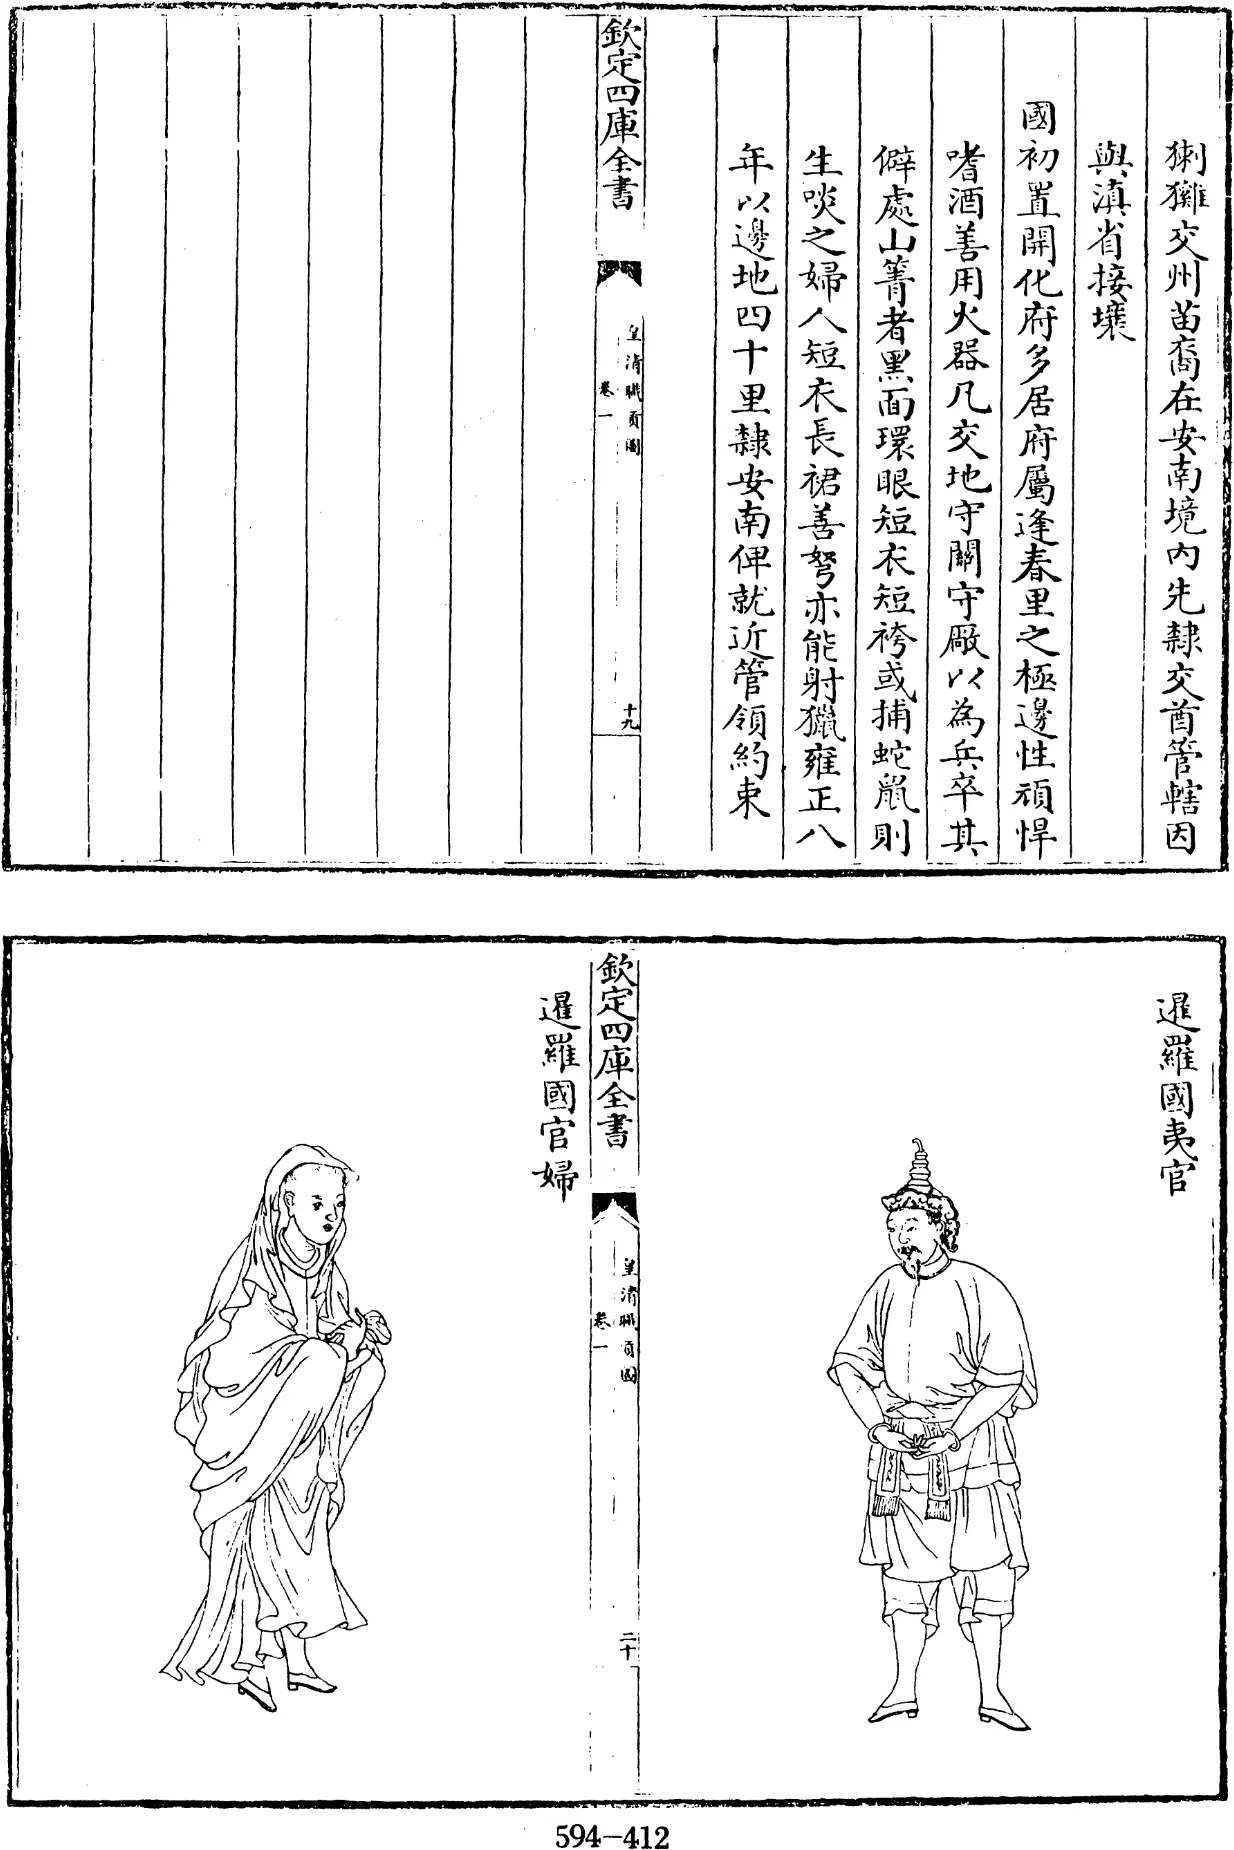 㺐𤢹交州苗裔在安南境内先隸交酋管轄因
與滇省接壤
國初置開化府多居府屬逢春里之極邊性頑悍
嗜酒善用火器凡交地守關守廠以為兵卒其
僻處山箐者黑面環眼短衣短袴或捕蛇鼠則
生啖之婦人短衣長裙善弩亦能射獵雍正八
年以邊地四十里隸安南俾就近管領約束
欽定四庫全書
皇清職貢圖
卷一
十九
暹羅國夷官
欽定四庫全書
皇清職貢圖
卷一
二十
暹羅國官婦
594-412